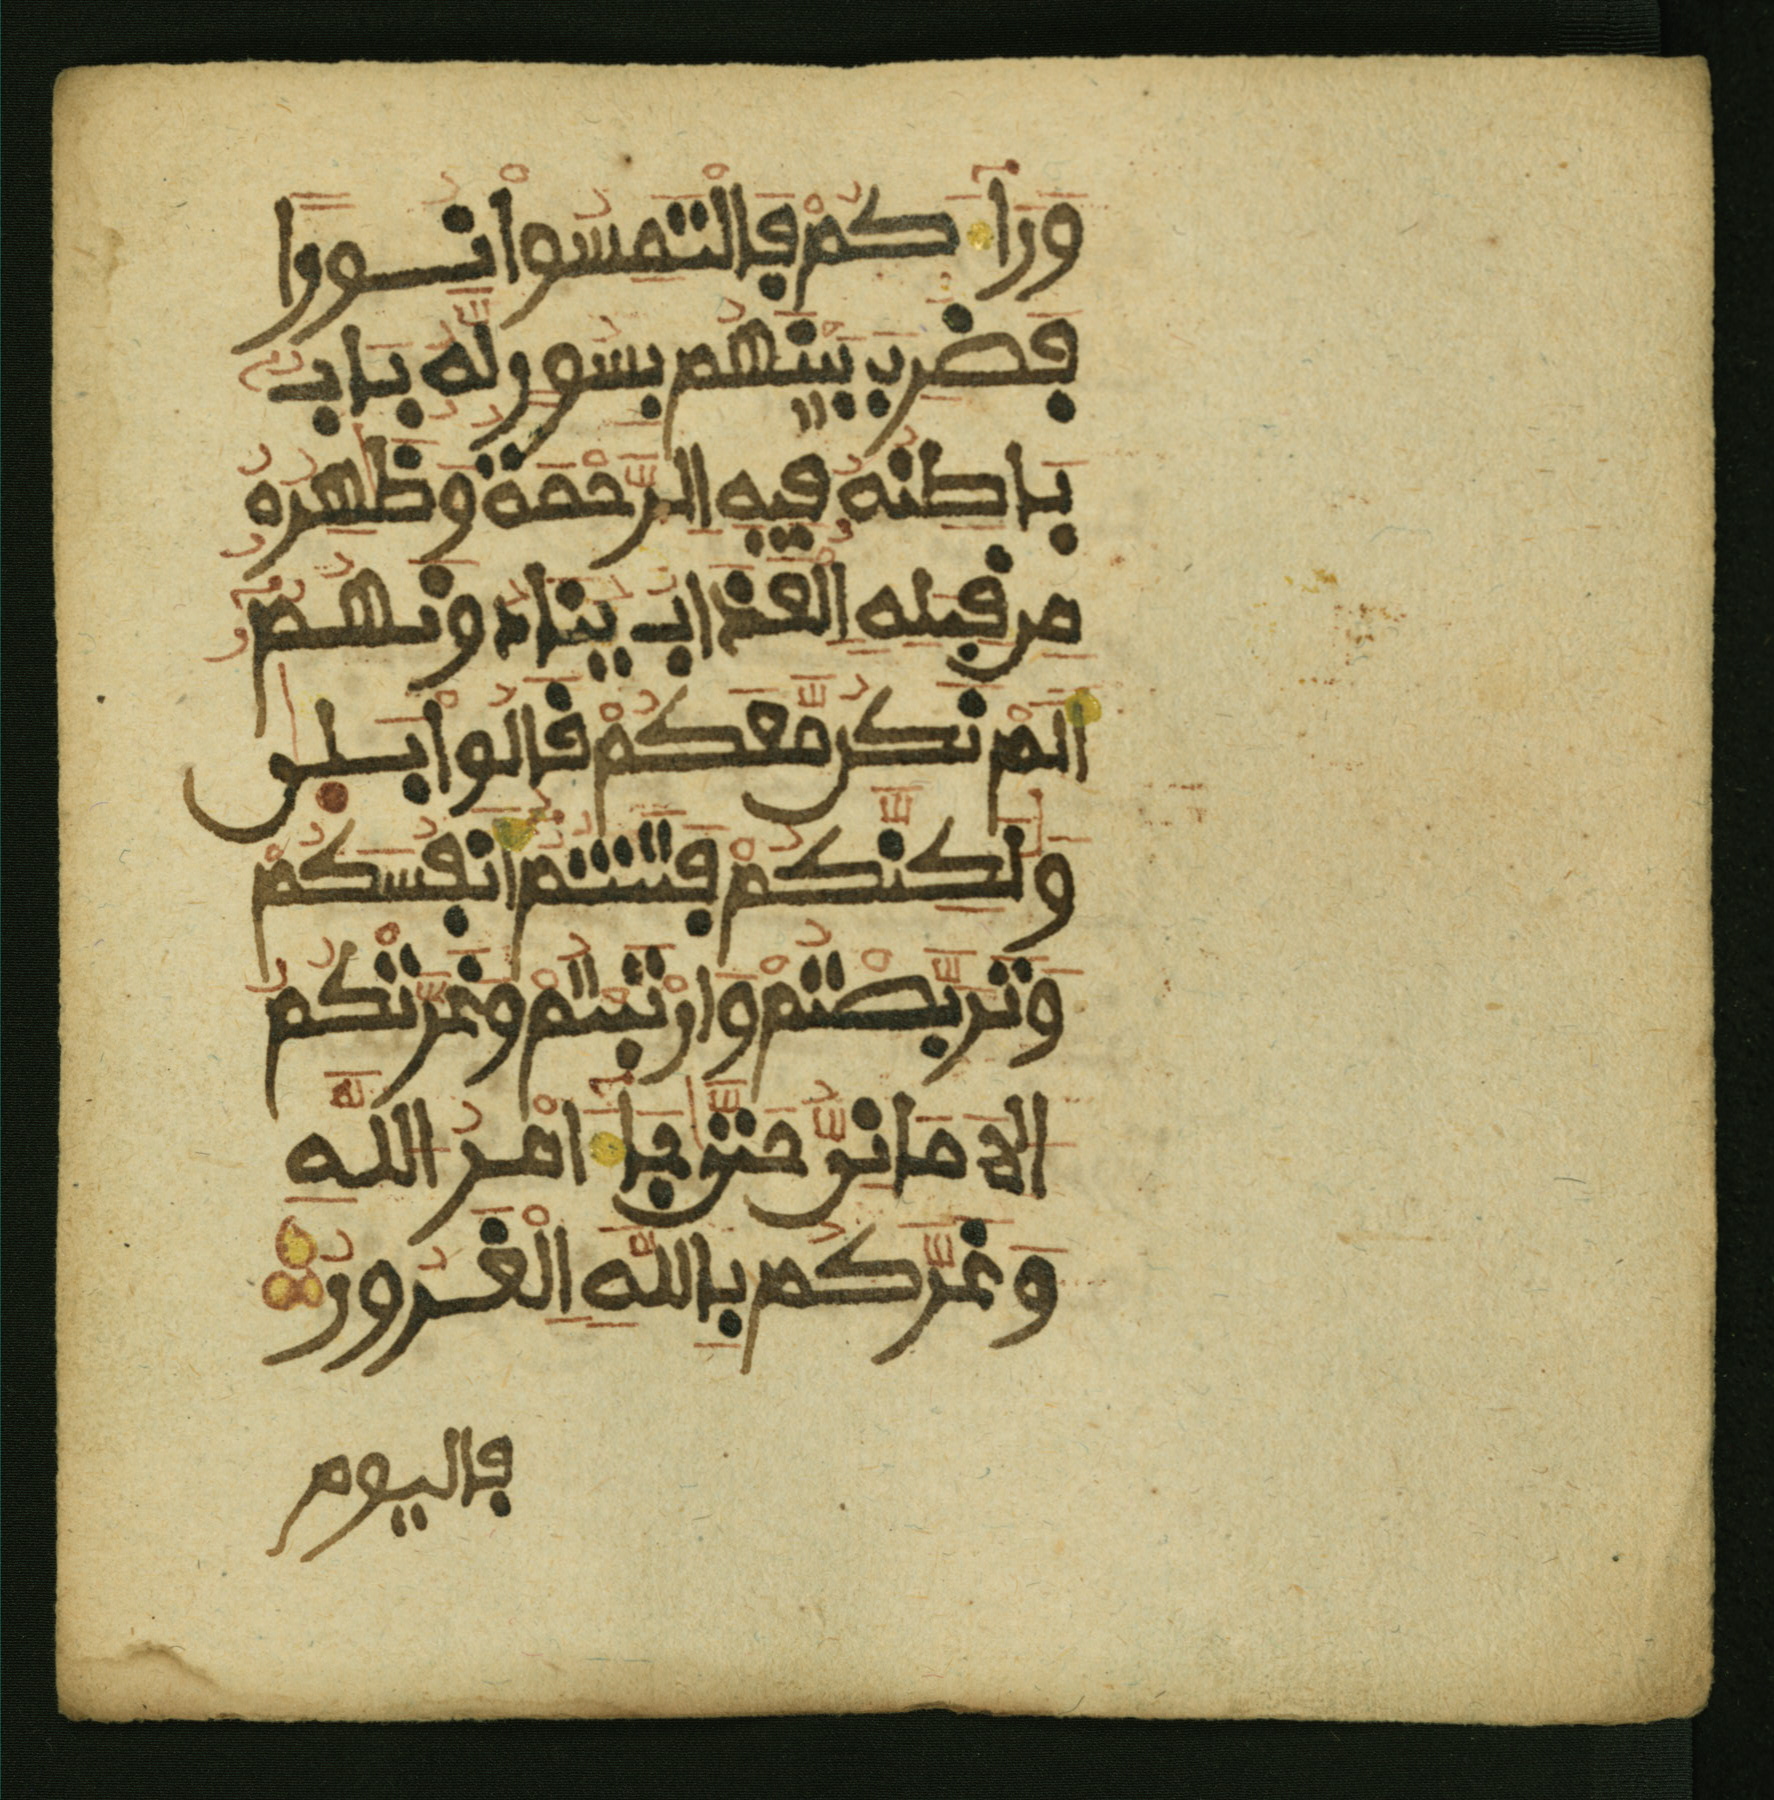 وَرَآءَكُمْ فَالْتَمِسُوا۟ نُورًا
فَضُرِبَ بَيْنَهُم بِسُورٍ لَّهُۥ بَابٌۢ
بَاطِنُهُۥ فِيهِ الرَّحْمَةُ وَظَٰهِرُهُۥ
مِن قِبَلِهِ الْعَذَابُ يُنَادُونَهُمُۥٓ
أَلَمْ نَكُن مَّعَكُمْ قَالُوا۟ بَلَىٰ
وَلَٰكِنَّكُمْ فَتَنتُمُۥٓ أَنفُسَكُمْ
وَتَرَبَّصْتُمْ وَارْتَبْتُمْ وَغَرَّتْكُمُ
الَامَانِىُّ حَتَّىٰ جَآءَ امْرُ اللَّهِ
وَغَرَّكُم بِاللَّهِ الْغَرُورُ
فاليوم